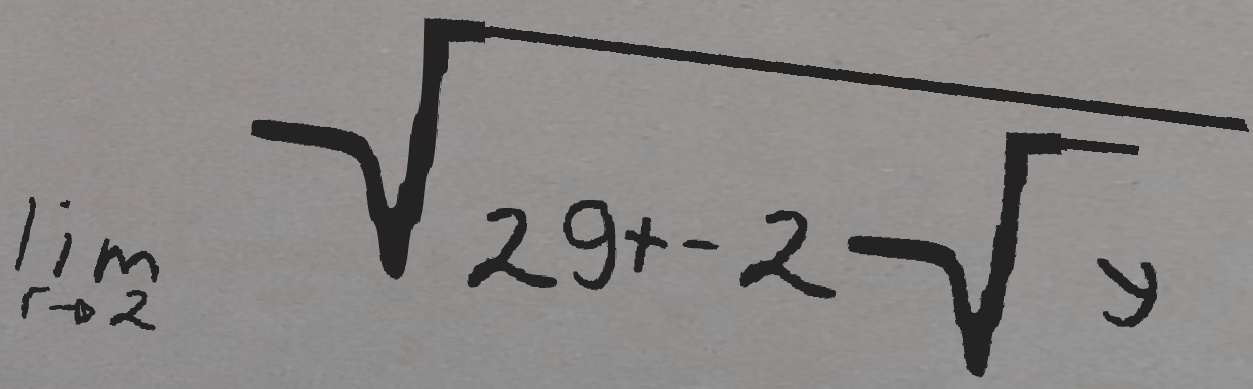 lim r→2 √(29+-2√y)